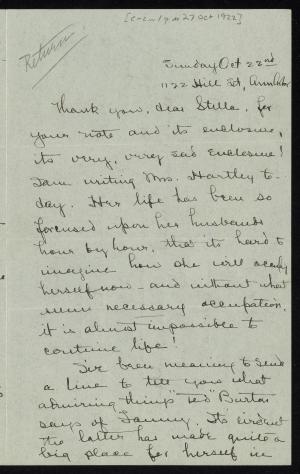 [c-in/y m 27 Oct 1922]
Return
Sunday Oct 22nd
1122 Hill St, Ann Arbor
Thank you, dear Stella, for
your note and its enclosure,
its very, very sad enclosure!
I am writing Mrs. Hartley to-
day. Her life has been so
focused upon her husbands
hour by hour, that its hard to
imagine how she will occupy
herself now - and without what
seems necessary occupation,
it is almost impossible to
continue life!
I've been meaning to send
a line to tell you what
admiring things "ted" Burton
says of Fanny. Its evident
the latter has made quite a
big place for herself in